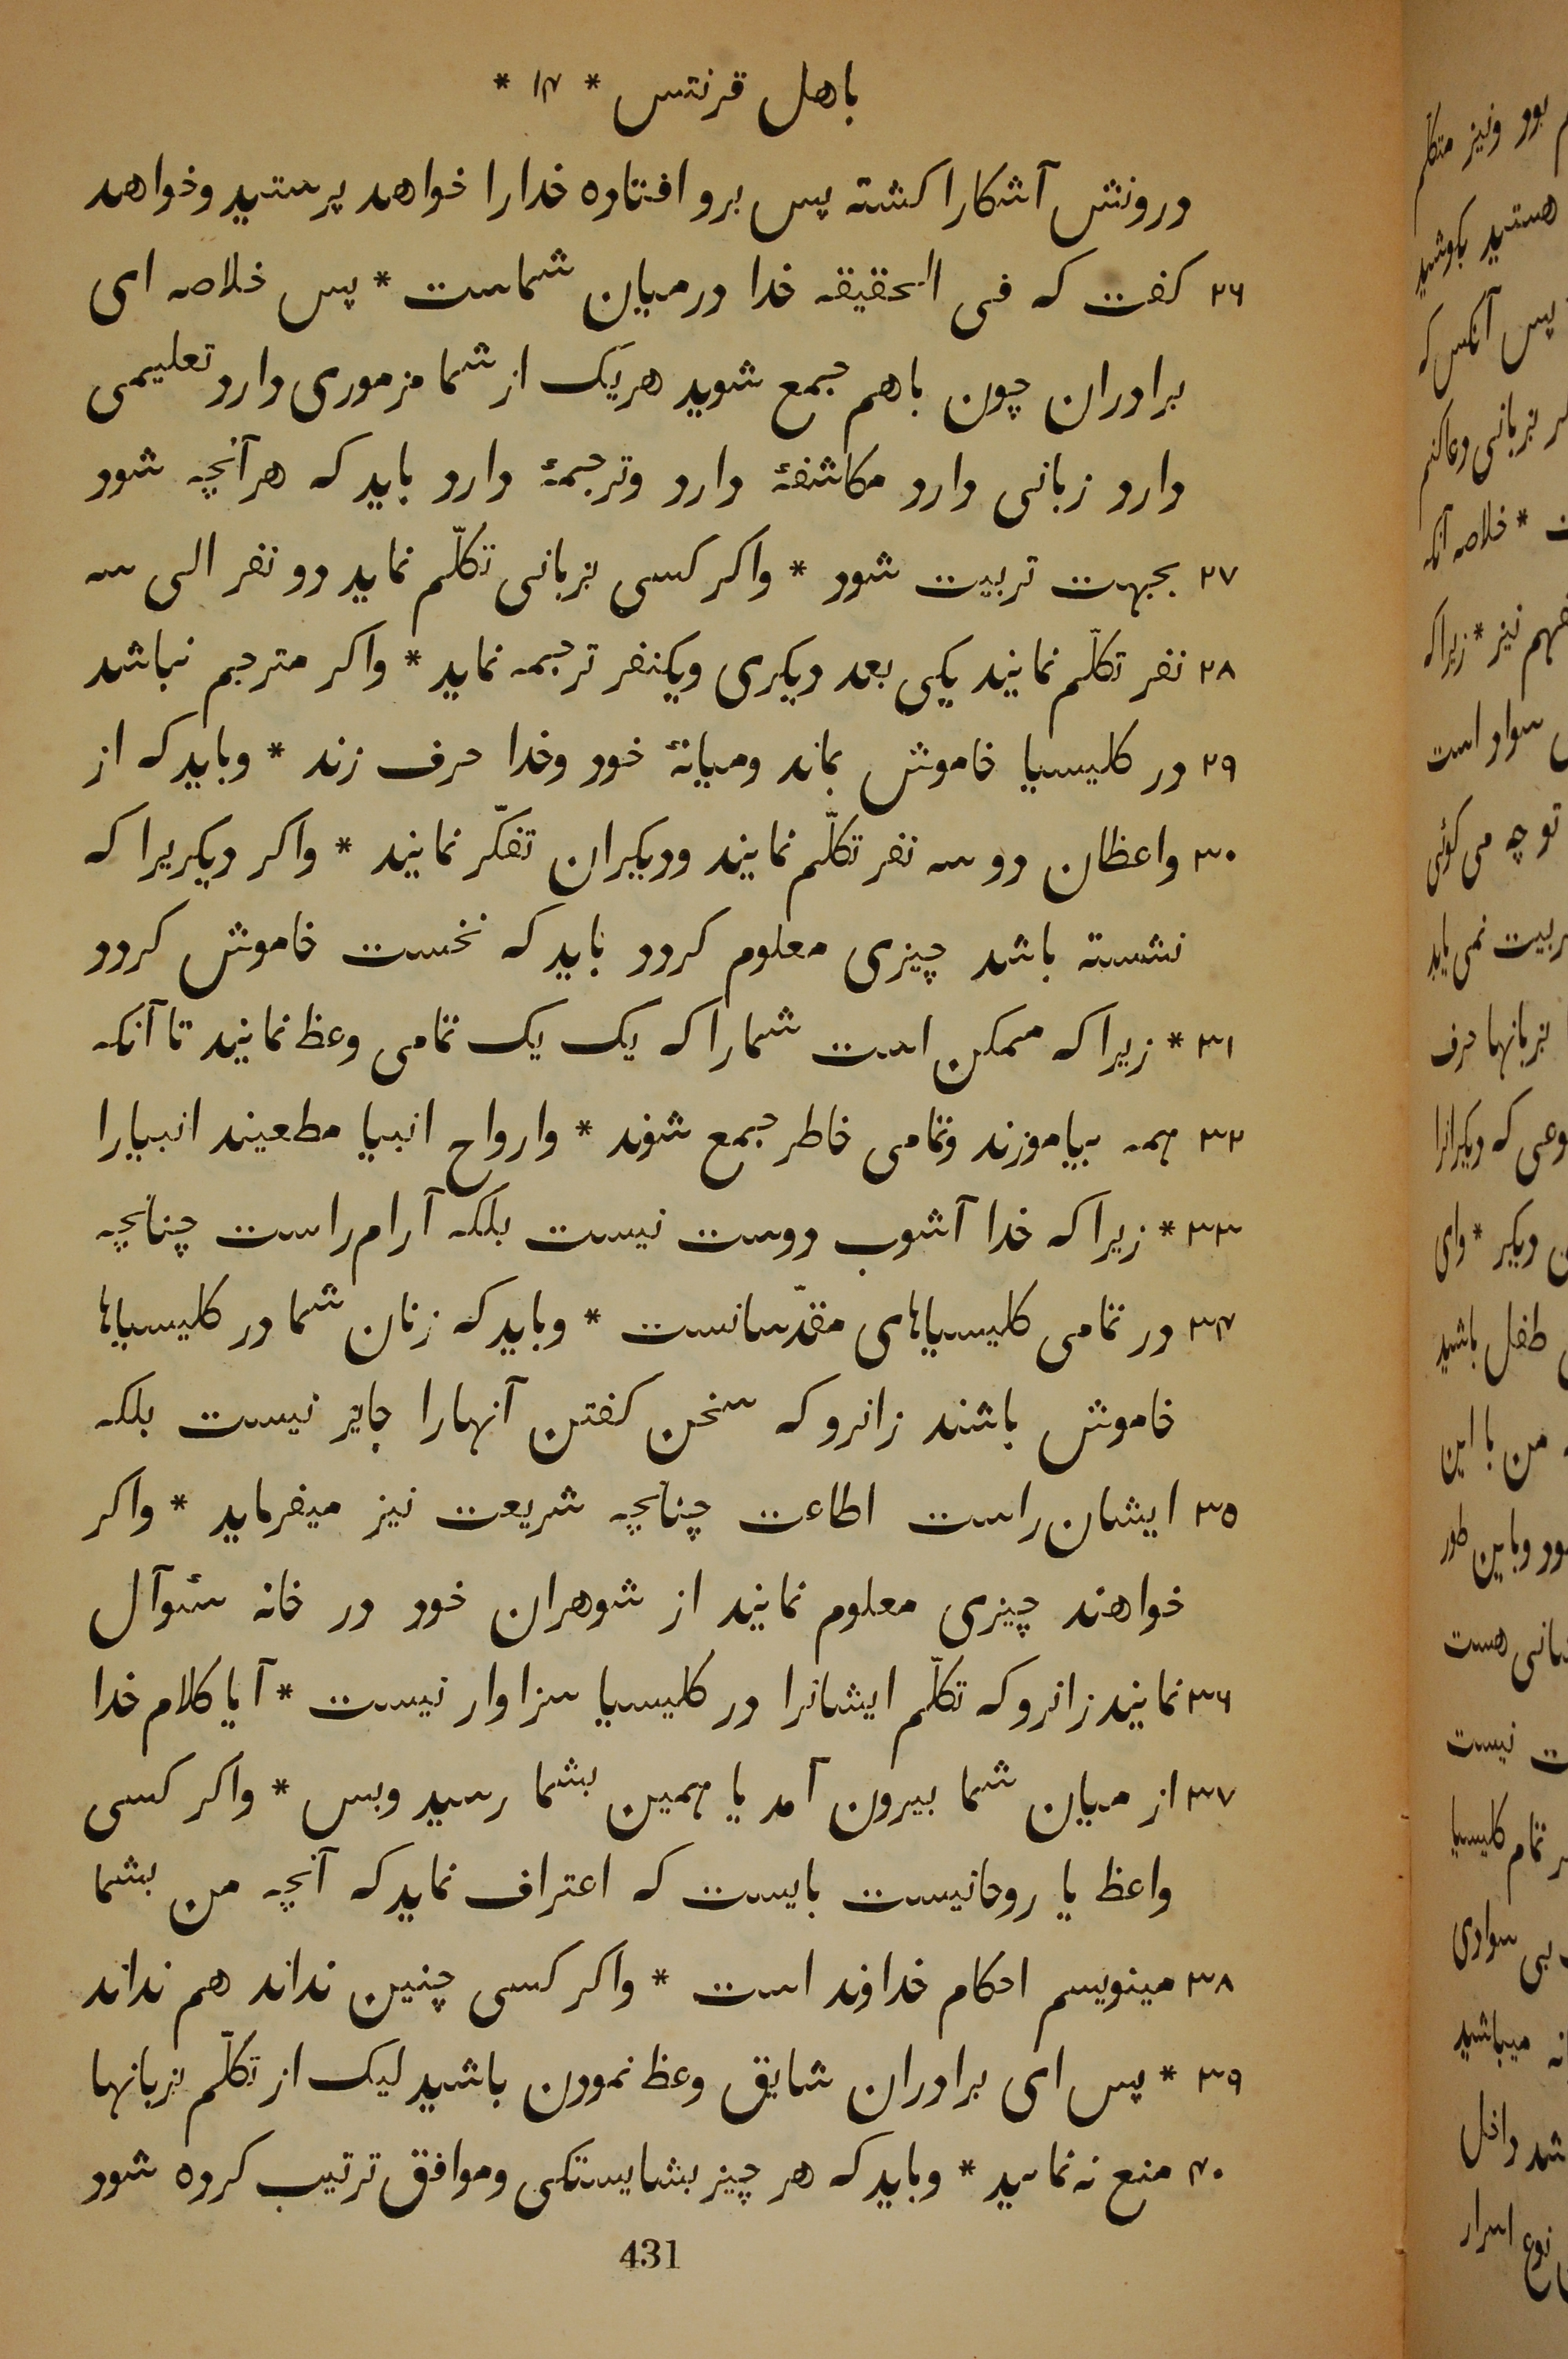 باهل قرنتس * ۱۴ *
درونش آشکارا کشته پس برو افتاده خدارا خواهد پرستید وخواهد
۲۶ کفت که فی الحقیقه خدا درمیان شماست * پس خلاصه ای
برادران چون باهم جمع شوید هریک از شما مزموری دارد تعلیمی
دارد زبانی دارد مکاشفهٔ دارد وترجمهٔ دارد باید که هرآنچه شود
۲۷ بجهت تربیت شود * واکر کسی بزبانی تکلّم نماید دو نفر الی سه
۲۸ نفر تکلّم نمایند یکی بعد دیکری ویکنفر ترجمه نماید * واکر مترجم نباشد
۲۹ در کلیسیا خاموش بماند ومیانهٔ خود وخدا حرف زند * وباید که از
۳۰ واعظان دو سه نفر تکلّم نمایند ودیکران تفکّر نمایند * واکر دیکریرا که
نشسته باشد چیزی معلوم کردد باید که نخست خاموش کردد
۳۱ * زیرا که ممکن است شمارا که یک یک تمامی وعظ نمایند تا آنکه
۳۲ همه بیاموزند وتمامی خاطر جمع شوند * وارواح انبیا مطعیند انبیارا
۳۳ * زیرا که خدا آشوب دوست نیست بلکه آرام راست چنانچه
۳۴ در تمامی کلیسیاهای مقدّسانست * وباید که زنان شما در کلیسیاها
خاموش باشند زانرو که سخن کفتن آنهارا جایز نیست بلکه
۳۵ ایشان راست اطاعت چنانچه شریعت نیز میفرماید * واکر
خواهند چیزی معلوم نمایند از شوهران خود در خانه سئوآل
۳۶ نمایند زانرو که تکلّم ایشانرا در کلیسیا سزاوار نیست * آیا کلام خدا
۳۷ از میان شما بیرون آمد یا همین بشما رسید وبس * واکر کسی
واعظ یا روحانیست بایست که اعتراف نماید که آنچه من بشما
۳۸ مینویسم احکام خداوند است * واکر کسی چنین نداند هم نداند
۳۹ * پس ای برادران شایق وعظ نمودن باشید لیک از تکلّم بزبانها
۴۰ منع نه نمائید * وباید که هر چیز بشایستکی وموافق ترتیب کرده شود
431